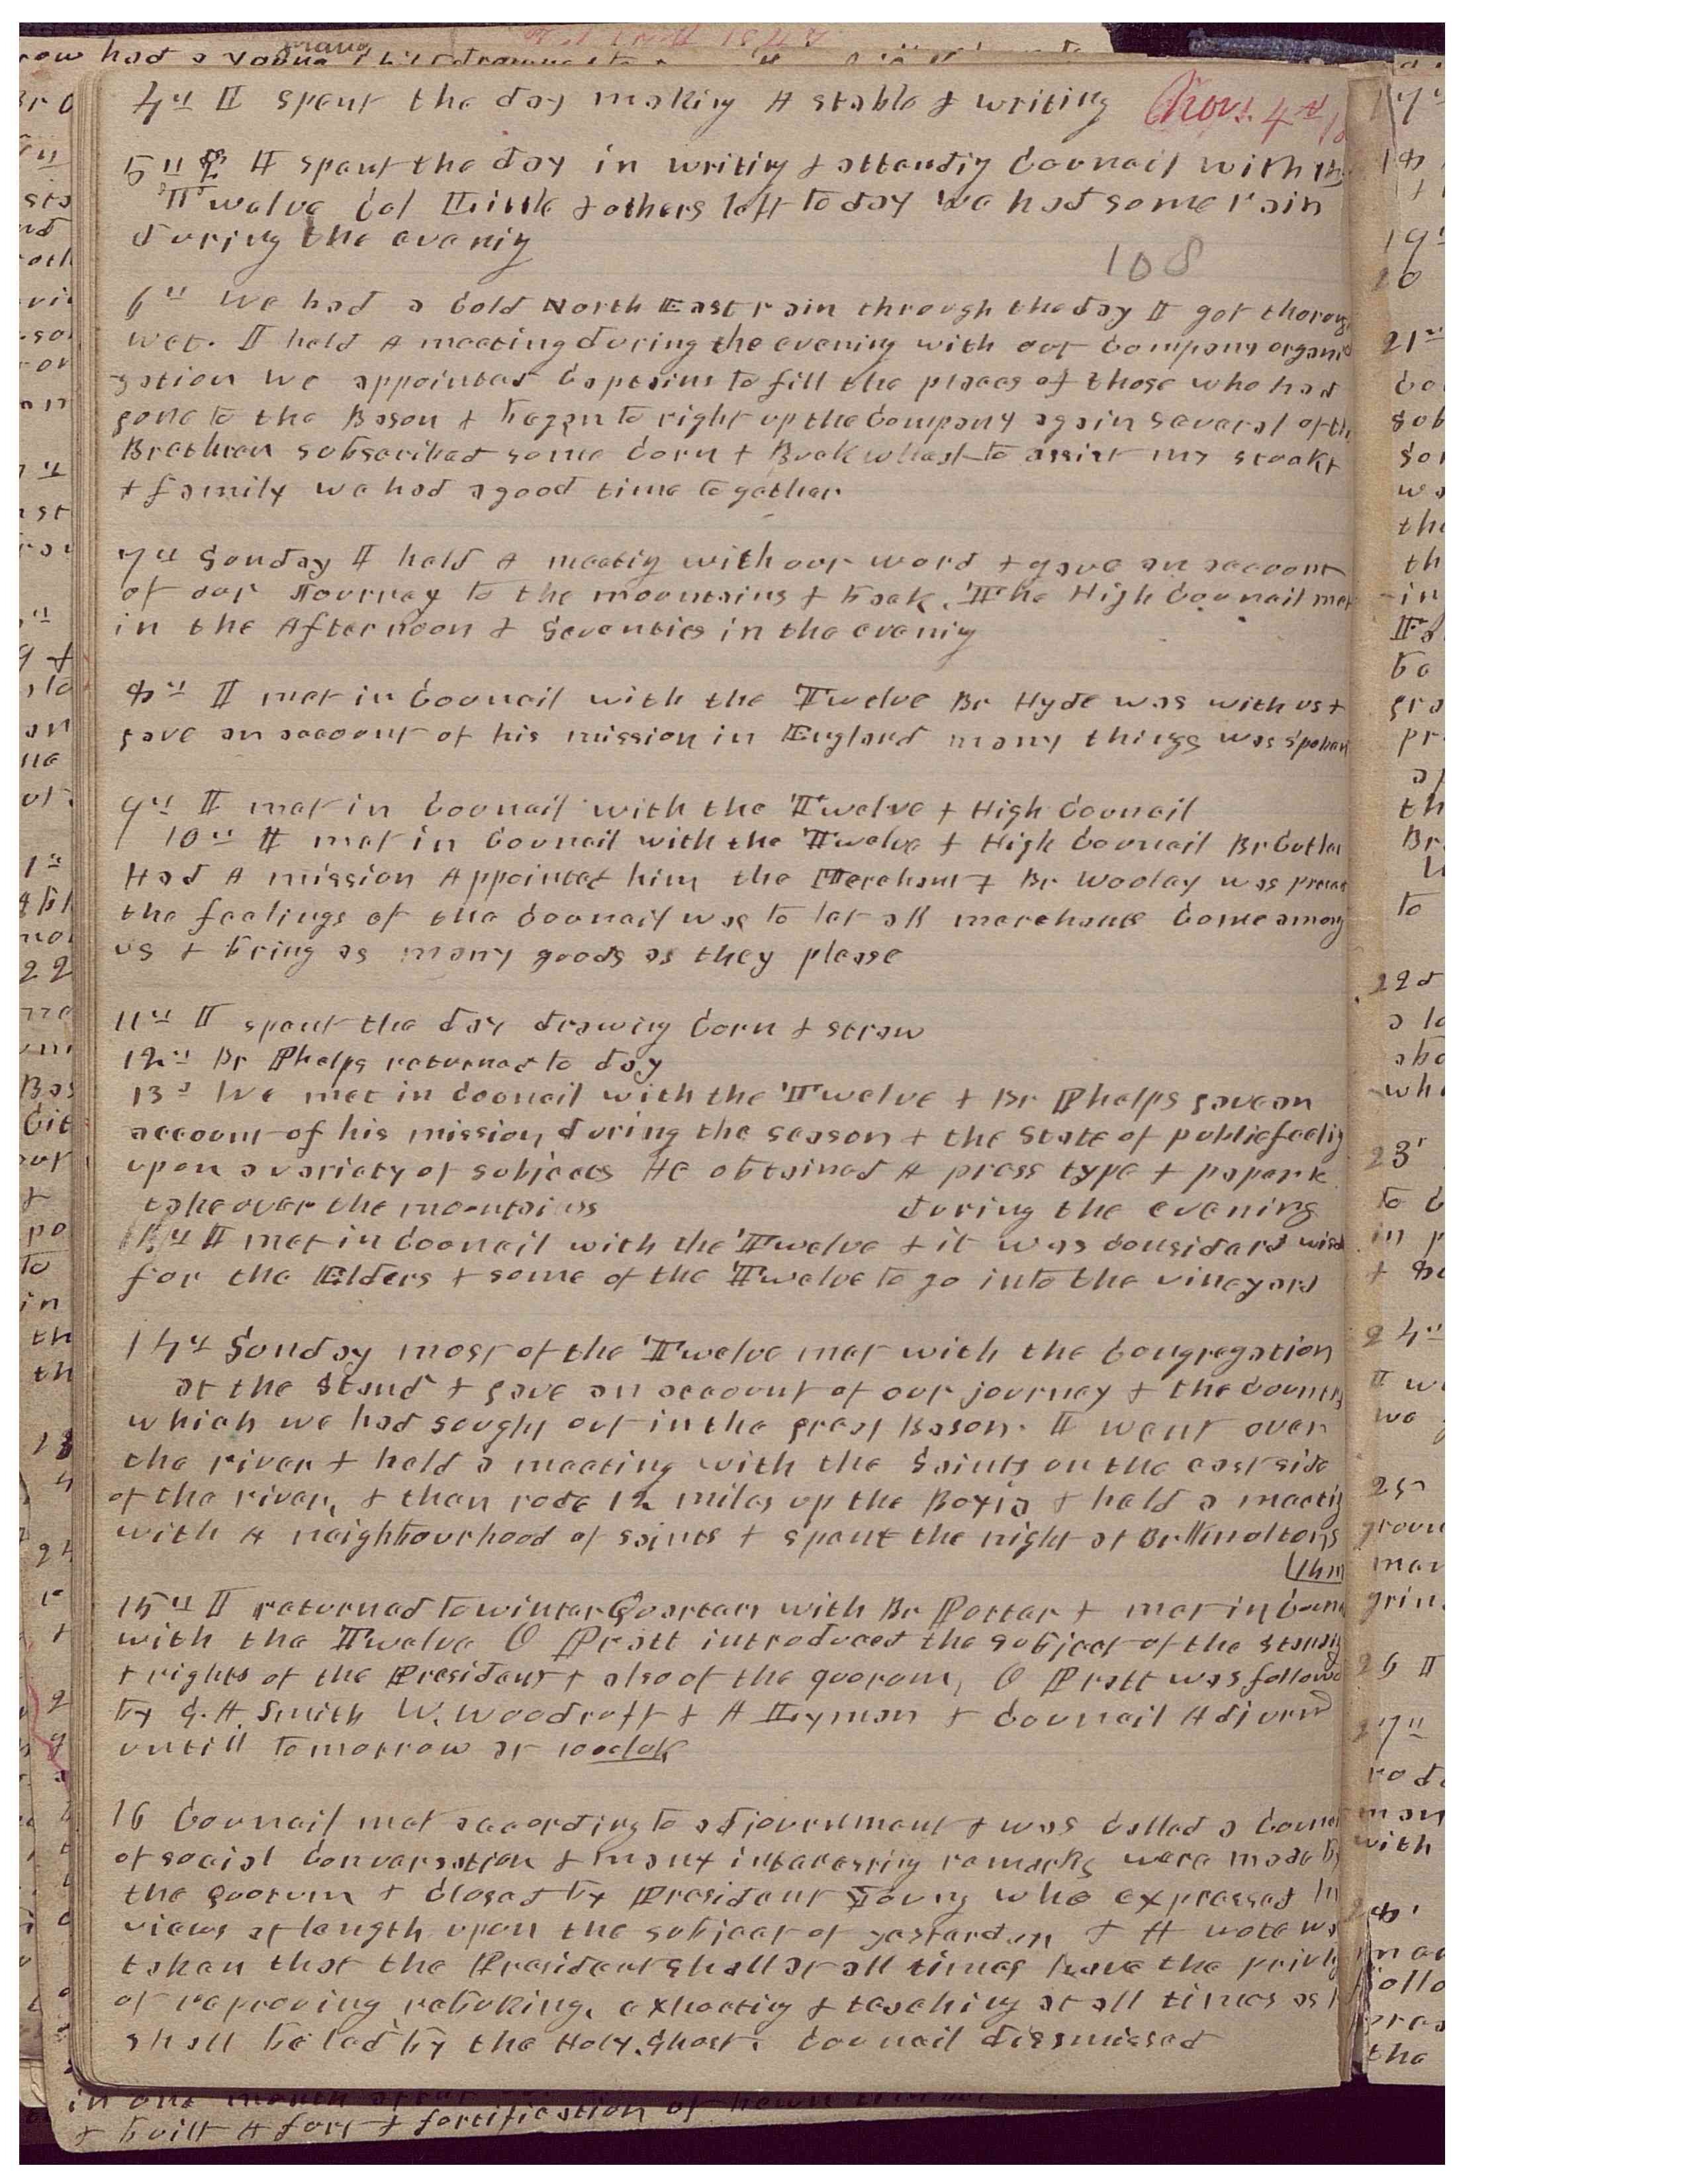 4th I spent the day making A stable & writing
Nov. 4th
5th I spent the day in writing & attendig Council with the
Twelve Col Little & others left to day we had some rain
during the evenig
108
6th We had a Cold North East rain through the day I got thoroug
wet. I held A meeting during the evening with our Company organi
zation we appointed Captains to fill the places of those who had
gone to the Bason & began to right up the Company again several of the
Brethren subscribed some Corn & Buckwheat to assist my stock &
& family we had a good time together
7th Sunday I held A meetig with our word & gave an account
of our Journey to the mountains & back. The High Council met
in the Afternoon & Seventies in the evenig
8th I met in Council with the Twelve Br Hyde was with us &
gave an account of his mission in England many things was spoken
9th I met in Council with the Twelve & High Council
10th I met in Council with the Twelve & High Council Br Cutler
Had A mission Appointed him the Merchant & Br Wooley was present
the feelings of the Council was to let all merchants Come among
us & bring as many goods as they please
11th I spent the day drawing Corn & straw
12th Br Phelps returned to day
13d We met in Council with the Twelve & Br Phelps gave an
account of his mission during the season & the State of public feelig
upon a variety of subjects He obtained A press type & paper
take over the mountains during the evening
I met in Council with the Twelve & it was Considerd wisd
for the Elders & some of the Twelve to go into the vineyard
14th Sunday most of the Twelve met with the Congregation
at the Stand & gave an account of our journey & the Country
which we had sought out in the great Bason. I went over
the river & held a meeting with the Saints on the east side
of the river, & than rode 12 miles up the Boyia & held a meetig
with A neighbourhood of saints & spent the night at Br
15th I returned to winter Quarters with Br Potter & met in Counc
with the Twelve O Pratt introduced the subject of the standig
& rights of the President & also of the quorum, O Pratt was followd
by G. A. Smith W. Woodruff & A Lyman & Council Adjurnd
untill tomorrow at 10 oclok
16 Council met according to adjournment & was Called a Council
of social Conversation & many interesting remarks were made by
the quorum & Closed by President Young who expressed
views at length upon the subject of yesterday & A vote was
taken that the President shall at all times have the privlg
of reproving rebuking, exhortig & teaching at all times as
shall be led by the Holy Ghost. Council dissmissed
in one month after
& built A fort & fortification of hewn